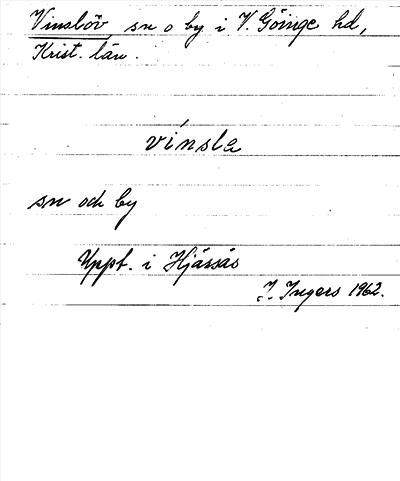 Vinslöv, sn o by i V. Göinge hd,
Krist. län.
vínsla
sn och by
Uppt. i Hjärsås
I. Ingers 1962.